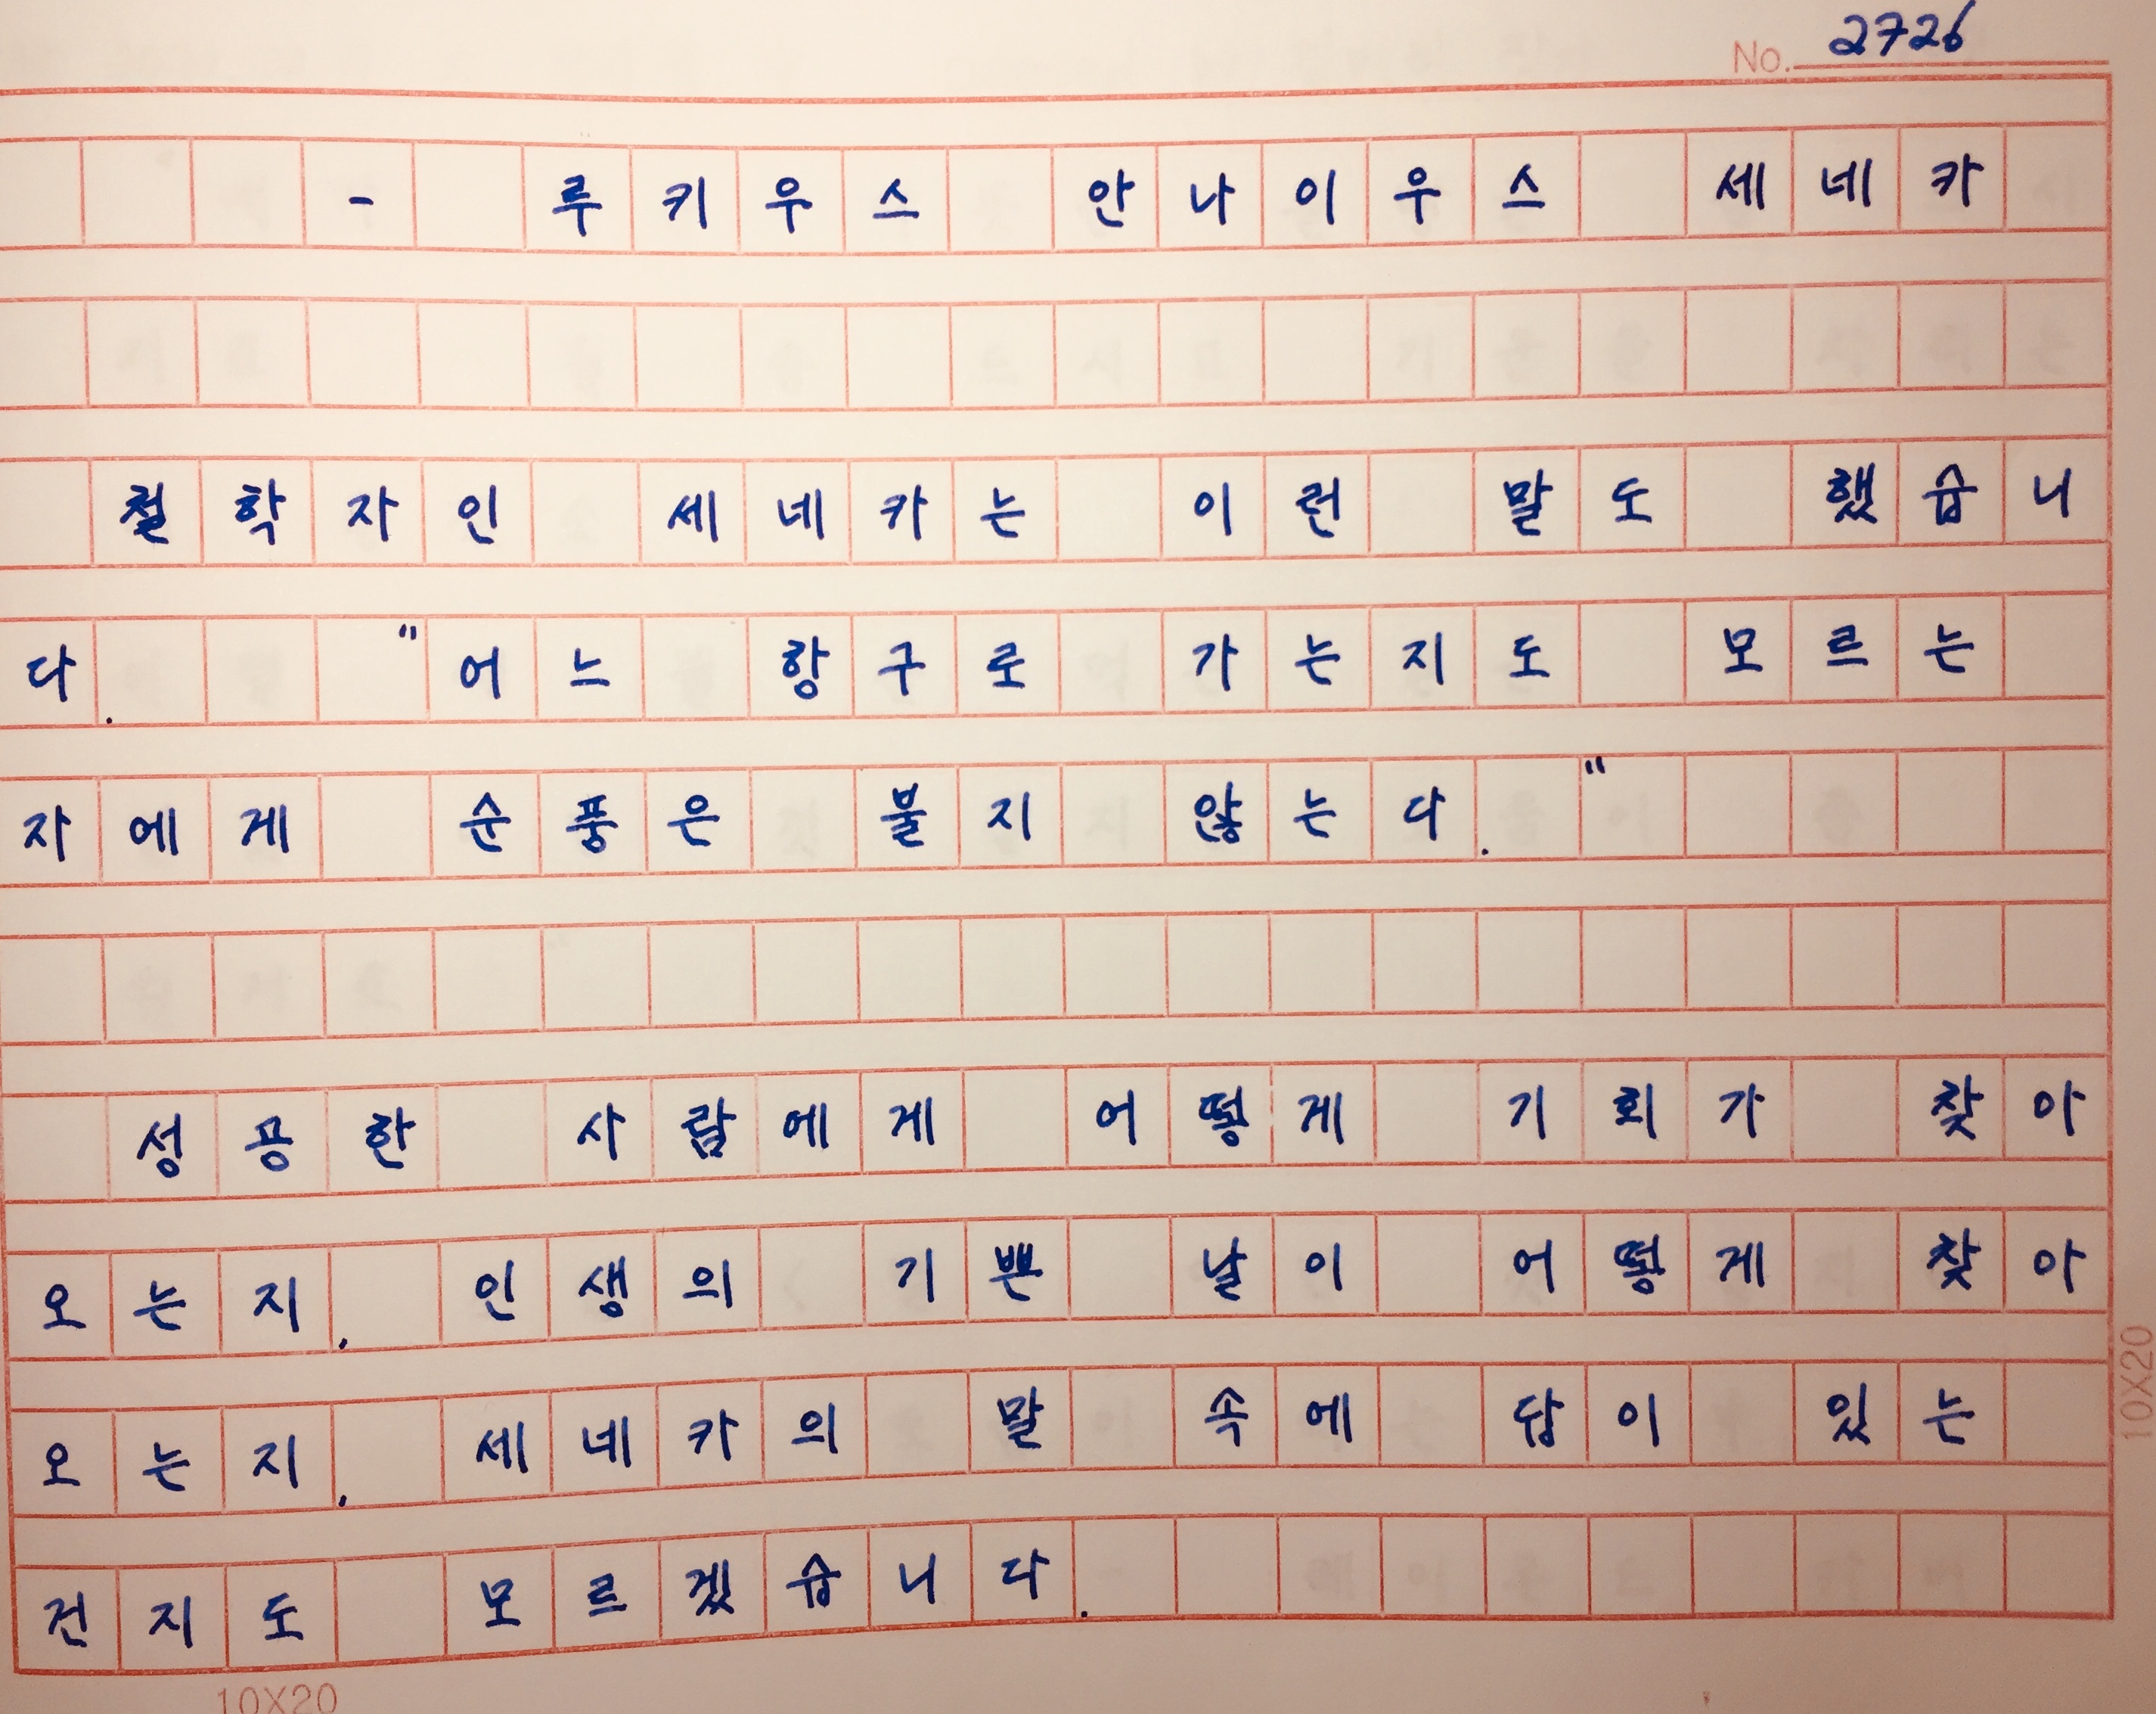 No. 2726
- 루키우스 안나이우스 세네카
철학자인 세네카는 이런 말도 했습니
다. "어느 항구로 가는지도 모르는
자에게 순풍은 불지 않는다."
성공한 사람에게 어떻게 기회가 찾아
오는지. 인생의 기쁜 날이 어떻게 찾아
오는지. 세네카의 말 속에 답이 있는
건지도 모르겠습니다.
10X20
10X20